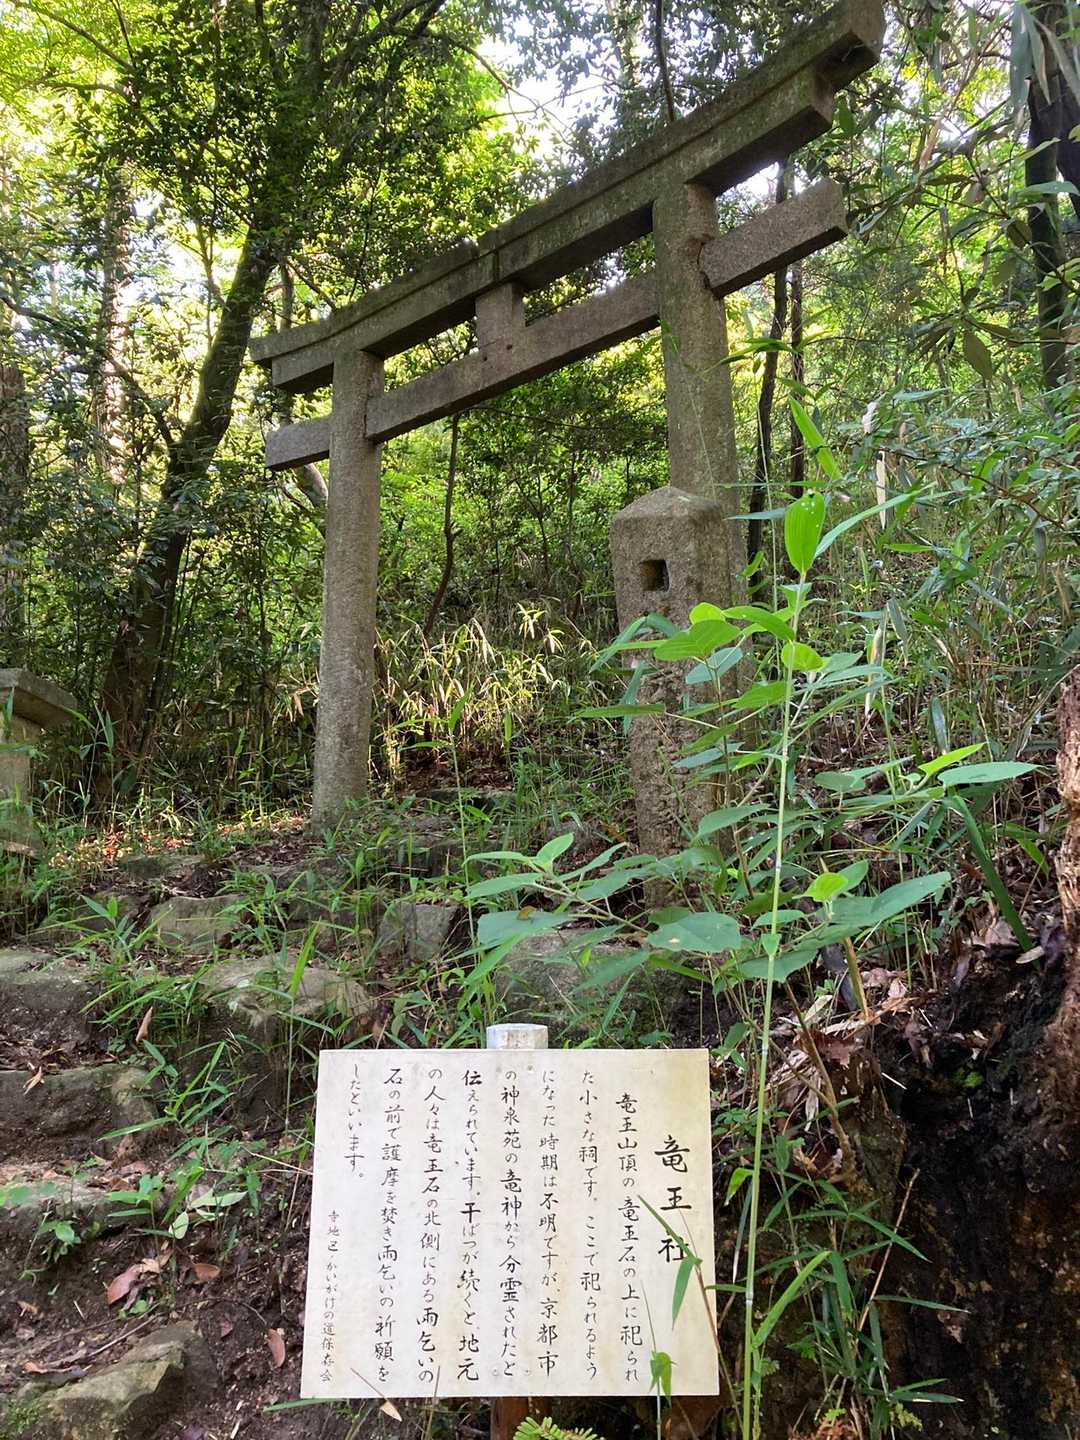 竜王社
竜王山頂の竜王石の上に祀られ
た小さな祠です。ここで祀られるよう
になった時期は不明ですが、京都市
の神泉苑の竜神から分霊されたと
伝えられています。干ばつが続くと、地元
の人々は竜王石の北側にある雨乞いの
石の前で護摩を焚き雨乞いの祈願を
したといいます。
寺地区/かいがけの道保存会